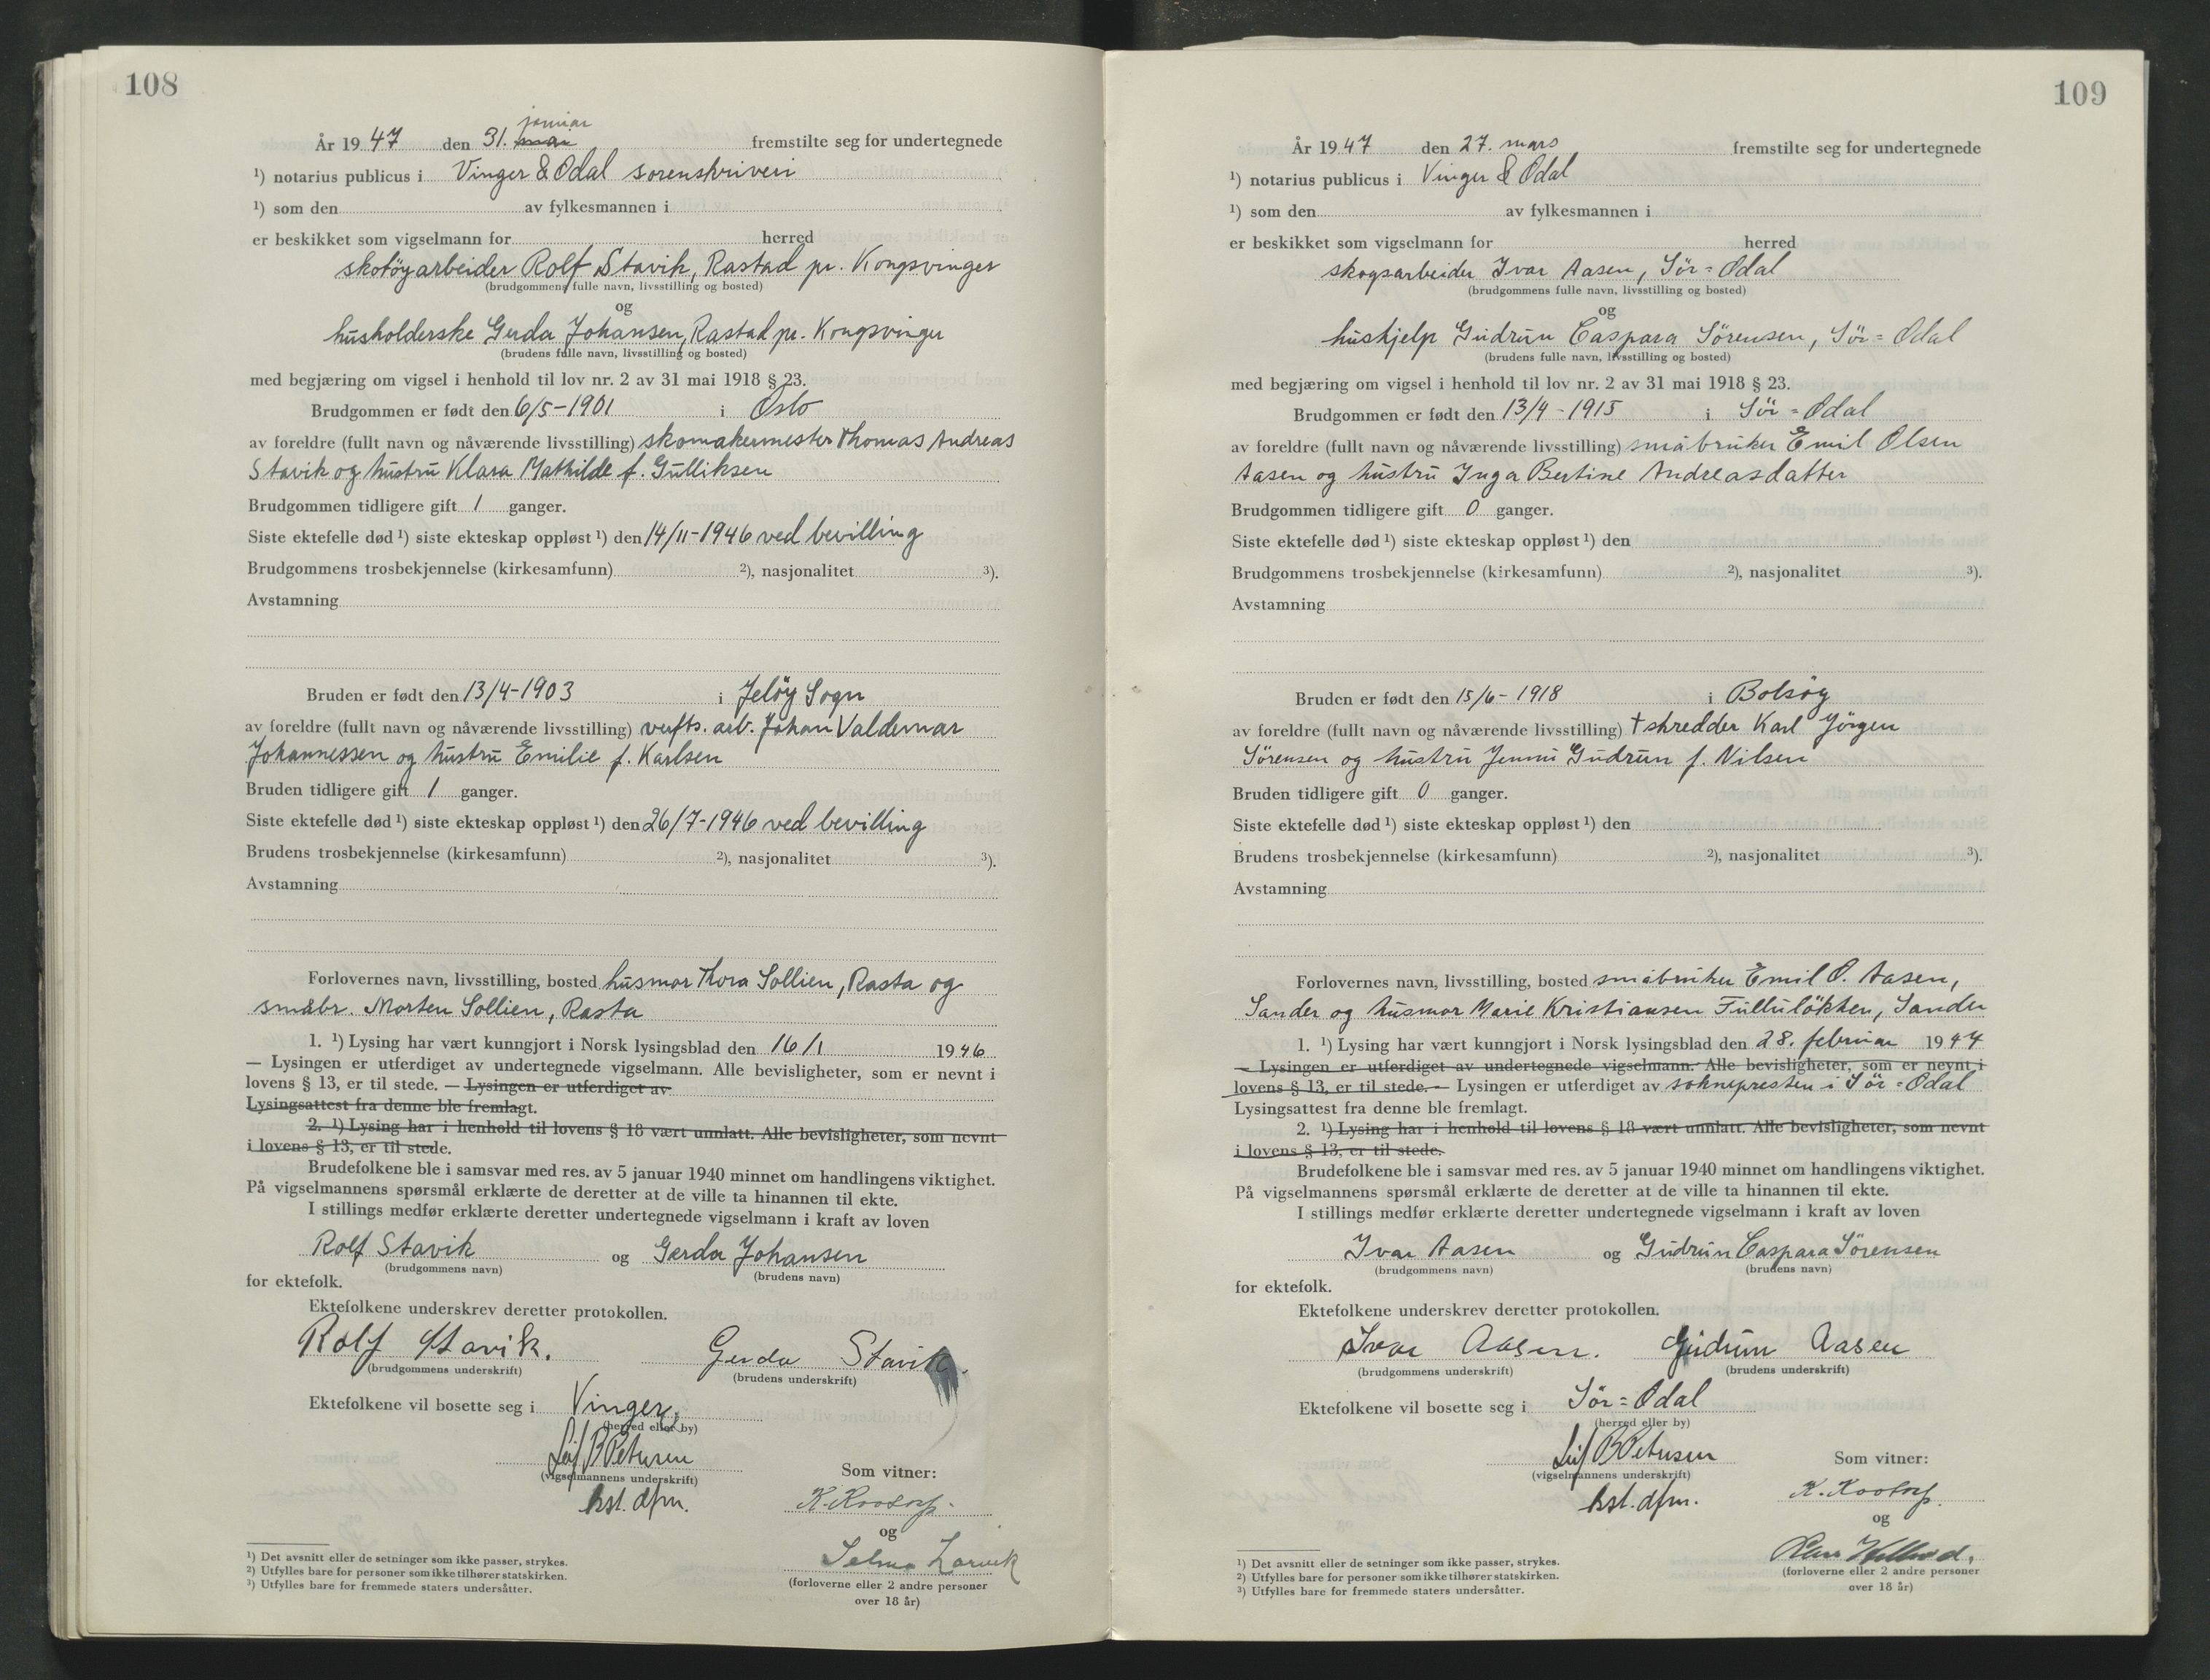 108
januar
År 1947 den 31. mai fremstilte seg for undertegnede
¹) notarius publicus i Vinger & Odal sorenskriveri
¹) som den av fylkesmannen i
er beskikket som vigselmann for herred
skotöyarbeider Rolf Stavik, Rastad pr. Kongsvinger
(brudgommens fulle navn, livsstilling og bosted)
og
husholderske Gerda Johansen, Rastad pr. Kongsvinger
(brudens fulle navn, livsstilling og bosted)
med begjæring om vigsel i henhold til lov nr. 2 av 31 mai 1918 § 23.
Brudgommen er født den 6/5-1901 i Oslo
av foreldre (fullt navn og nåværende livsstilling) skomakermester Thomas Andreas
Stavik og hustru Klara Mathilde f. Gulliksen
Brudgommen tidligere gift 1 ganger.
Siste ektefelle død ¹) siste ekteskap oppløst ¹) den 14/11-1946 ved bevilling
Brudgommens trosbekjennelse (kirkesamfunn) ²), nasjonalitet ³).
Avstamning
Bruden er født den 13/4-1903 i Jelöy Sogn
av foreldre (fullt navn og nåværende livsstilling) verfts. arb. Johan Valdemar
Johannessen og hustru Emilie f. Karlsen
Bruden tidligere gift 1 ganger.
Siste ektefelle død ¹) siste ekteskap oppløst ¹) den 26/7-1946 ved bevilling
Brudens trosbekjennelse (kirkesamfunn) ²), nasjonalitet ³).
Avstamning
Forlovernes navn, livsstilling, bosted husmor Thora Sollien, Rasta og
småbr. Morten Sollien, Rasta
1. ¹) Lysing har vært kunngjort i Norsk lysingsblad den 16/1 1946
— Lysingen er utferdiget av undertegnede vigselmann. Alle bevisligheter, som er nevnt i
lovens § 13, er til stede. — Lysingen er utferdiget av
Lysingsattest fra denne ble fremlagt.
2. ¹) Lysing har i henhold til lovens § 18 vært unnlatt. Alle bevisligheter, som nevnt
i lovens § 13, er til stede.
Brudefolkene ble i samsvar med res. av 5 januar 1940 minnet om handlingens viktighet.
På vigselmannens spørsmål erklærte de deretter at de ville ta hinannen til ekte.
I stillings medfør erklærte deretter undertegnede vigselmann i kraft av loven
Rolf Stavik og Gerda Johansen
(brudgommens navn) (brudens navn)
for ektefolk.
Ektefolkene underskrev deretter protokollen.
Rolf Stavik. Gerda Stavik.
(brudgommens underskrift) (brudens underskrift)
Ektefolkene vil bosette seg i Vinger,
(herred eller by)
Leif B Petersen
(vigselmannens underskrift) Som vitner:
kst. dfm. K. Rostorp.
og
Selma Larvik
(forloverne eller 2 andre personer
over 18 år)
¹) Det avsnitt eller de setninger som ikke passer, strykes.
²) Utfylles bare for personer som ikke tilhører statskirken.
³) Utfylles bare for fremmede staters undersåtter.
109
År 1947 den 27. mars fremstilte seg for undertegnede
¹) notarius publicus i Vinger & Odal
¹) som den av fylkesmannen i
er beskikket som vigselmann for herred
skogsarbeider Ivar Aasen, Sör=Odal
(brudgommens fulle navn, livsstilling og bosted)
og
hushjelp Gudrun Caspara Sörensen, Sör=Odal
(brudens fulle navn, livsstilling og bosted)
med begjæring om vigsel i henhold til lov nr. 2 av 31 mai 1918 § 23.
Brudgommen er født den 13/4-1915 i Sör=Odal
av foreldre (fullt navn og nåværende livsstilling) småbruker Emil Olsen
Aasen og hustru Inga Bertine Andreasdatter
Brudgommen tidligere gift 0 ganger.
Siste ektefelle død ¹) siste ekteskap oppløst ¹) den
Brudgommens trosbekjennelse (kirkesamfunn) ²), nasjonalitet ³).
Avstamning
Bruden er født den 15/6-1918 i Bolsöy
av foreldre (fullt navn og nåværende livsstilling) † skredder Karl Jörgen
Sörensen og hustru Jenni Gudrun f. Nilsen
Bruden tidligere gift 0 ganger.
Siste ektefelle død ¹) siste ekteskap oppløst ¹) den
Brudens trosbekjennelse (kirkesamfunn) ²), nasjonalitet ³).
Avstamning
Forlovernes navn, livsstilling, bosted småbruker Emil O. Aasen,
Sander og husmor Marie Kristiansen Fulluløkken, Sander
1. ¹) Lysing har vært kunngjort i Norsk lysingsblad den 28. februar 1947
— Lysingen er utferdiget av undertegnede vigselmann. Alle bevisligheter, som er nevnt i
lovens § 13, er til stede. — Lysingen er utferdiget av soknepresten i Sör=Odal
Lysingsattest fra denne ble fremlagt.
2. ¹) Lysing har i henhold til lovens § 18 vært unnlatt. Alle bevisligheter, som nevnt
i lovens § 13, er til stede.
Brudefolkene ble i samsvar med res. av 5 januar 1940 minnet om handlingens viktighet.
På vigselmannens spørsmål erklærte de deretter at de ville ta hinannen til ekte.
I stillings medfør erklærte deretter undertegnede vigselmann i kraft av loven
Ivar Aasen og Gudrun Caspara Sörensen
(brudgommens navn) (brudens navn)
for ektefolk.
Ektefolkene underskrev deretter protokollen.
Ivar Aasen. Gudrun Aasen
(brudgommens underskrift) (brudens underskrift)
Ektefolkene vil bosette seg i Sör=Odal
(herred eller by)
Leif B Petersen
(vigselmannens underskrift) Som vitner:
kst. dfm. K. Rostorp.
og
(forloverne eller 2 andre personer
over 18 år)
¹) Det avsnitt eller de setninger som ikke passer, strykes.
²) Utfylles bare for personer som ikke tilhører statskirken.
³) Utfylles bare for fremmede staters undersåtter.